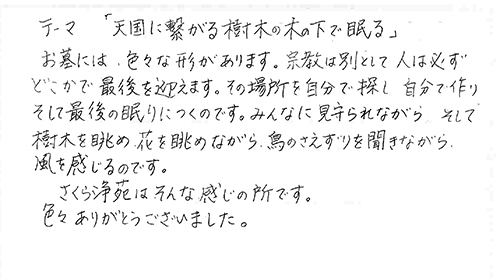 テーマ 「天国に繋がる樹木の木の下で眠る」
お墓には、色々な形があります。宗教は別として人は必ず
どこかで最後を迎えます。その場所を自分で探し 自分で作り
そして最後の眠りにつくのです。みんなに見守られながら そして
樹木を眺め、花を眺めながら、鳥のさえずりを聞きながら、
風を感じるのです。
さくら浄苑はそんな感じの所です。
色々ありがとうございました。